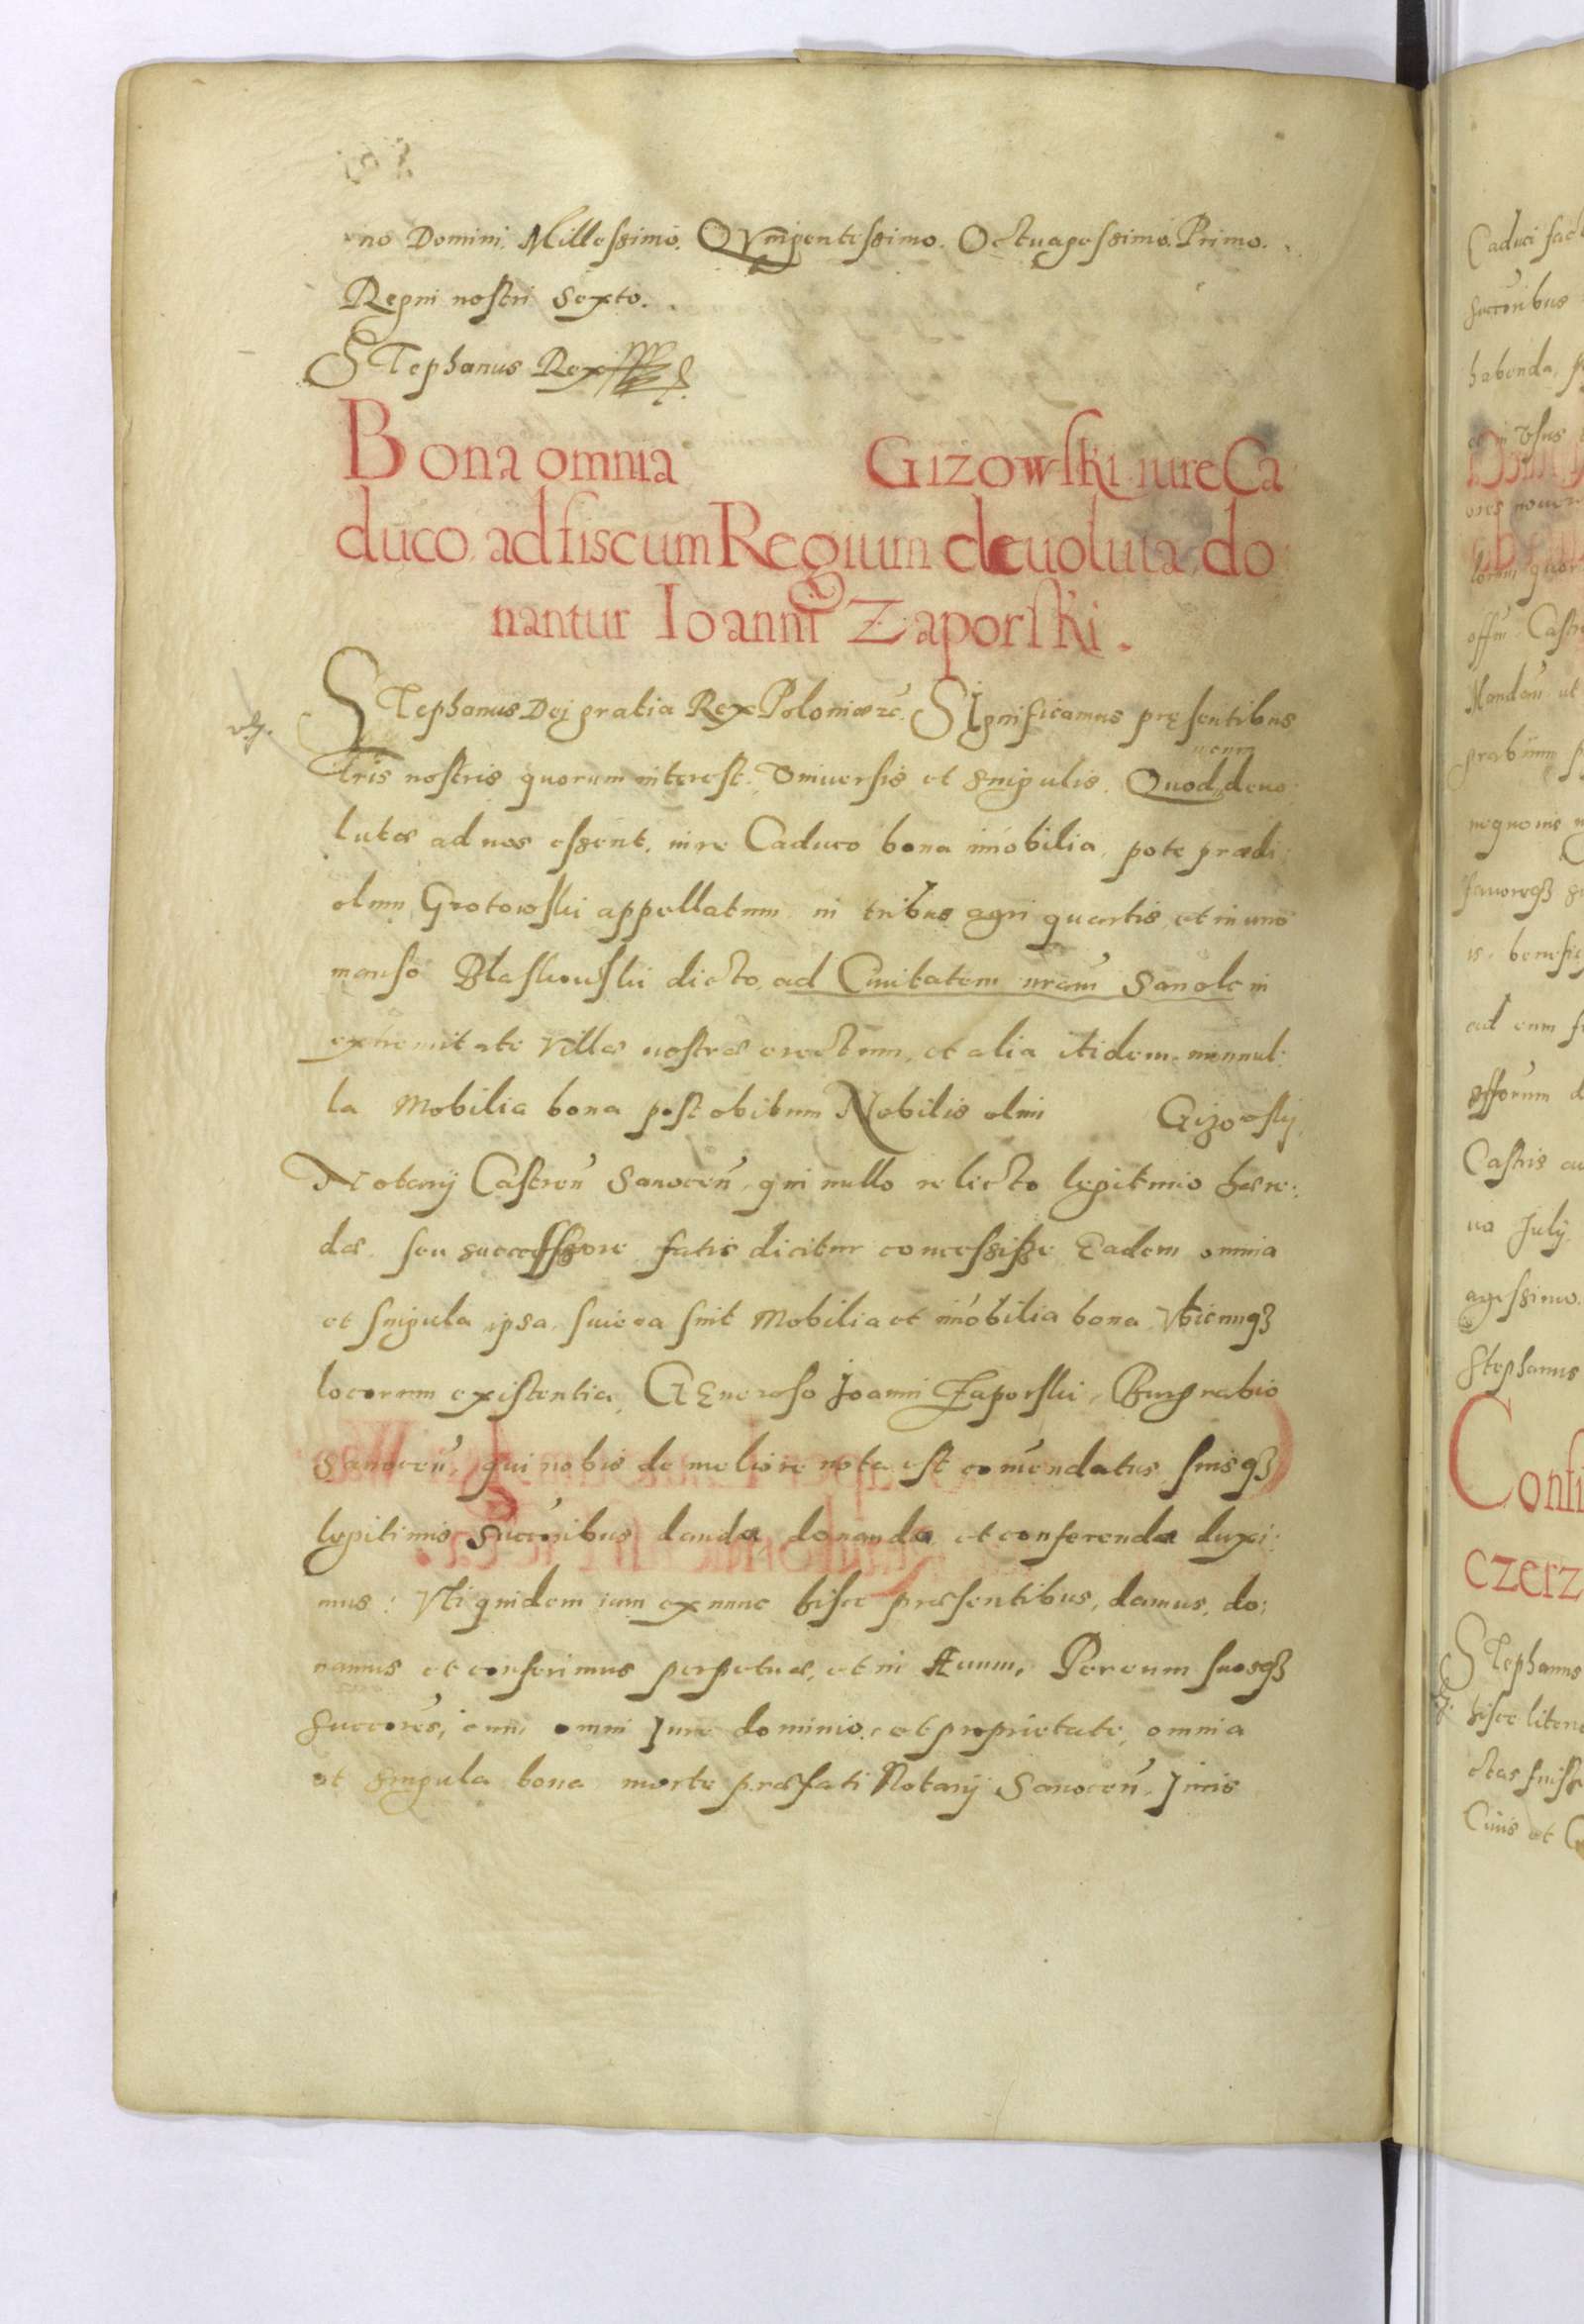 no Domini. Millessimo. QVingentessimo. Octuagessimo. Primo.
Regni nostri Sexto.
STephanus Rex
Bona omnia Giżowski iure Ca
duco ad fiscum Regium deuoluta do
nantur Ioanni Zaporski.
STephanus Dej gratia Rex Poloniæ &c. SIgnificamus pręsentibus
Lris nostris quorum interest. Vniuersis et singulis. Quod deuo
lutæ ad nos essent. iure Caduco bona imobilia, pote prædi
olum Grotowski appellatum in tribus agri quartis et in uno
manso Blaskowski dicto, ad Ciuitatem nram Sanok in
extremitate Villæ nostræ erectum, et alia itidem nonnul:
la Mobilia bona post obitum Nobilis olim Gizowskij
Notarij Castren Sanocen, qui nullo relicto legitimo hære:
de, seu successore fatis dicitur concessisse Eadem omnia
et singula ipsa, siue ea sint Mobilia et imobilia bona Vbicunq3
locorum existentia, GEneroso Joanni Zaporski, Burgrabio
Sanocen, qui nobis de meliore nota est comendatus suisq3
legitimis succoribus danda, donanda et conferenda duxi:
mus: Vti quidem iam ex nunc hisce præsentibus, damus, do:
namus et conferimus perpetuæ, et in Æuum, Per eum suosq3
succores, cum omni Jure dominio, et proprietate, omnia
et singula bona morte præfati Notarij Sanocen, Juris
Caduci
succoribus
habenda,
offm Castr
Castris
uo July
agessimo.
Stephanus
Confi
czerz
STephanus
hisce litera
Ciuis et